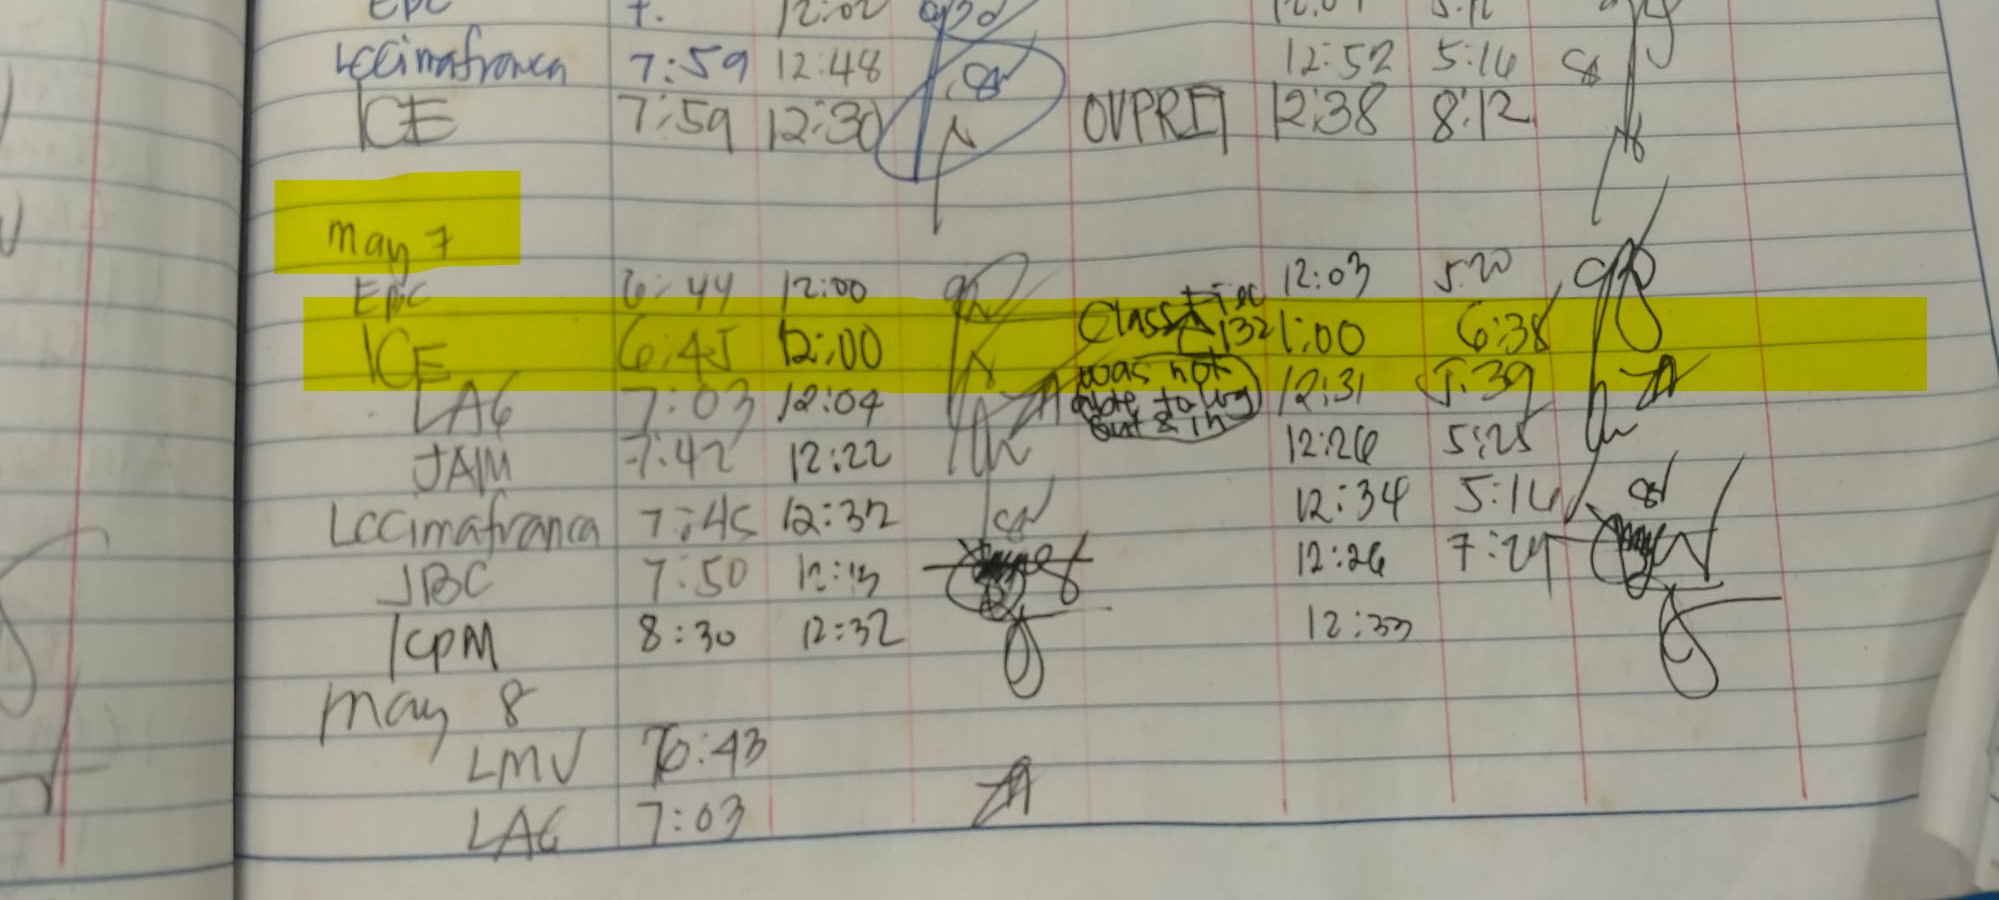 EPC 7: 12:02
LCCimafranca 7:59 12:48 12:52 5:16
ICE 7:59 12:30 OVPREI 12:38 8:12
May 7
EPC 6:44 12:00 12:03 5:20
ICE 6:45 12:00 Class 132 1:00 6:38
LAG 7:03 12:04 was not able to log out & in 12:31 5:39
JAM 7:42 12:22 12:26 5:25
LCCimafranca 7:45 12:32 12:34 5:16
JBC 7:50 12:13 12:26 7:24
KPM 8:30 12:32 12:33
May 8
LMV 6:43
LAG 7:03